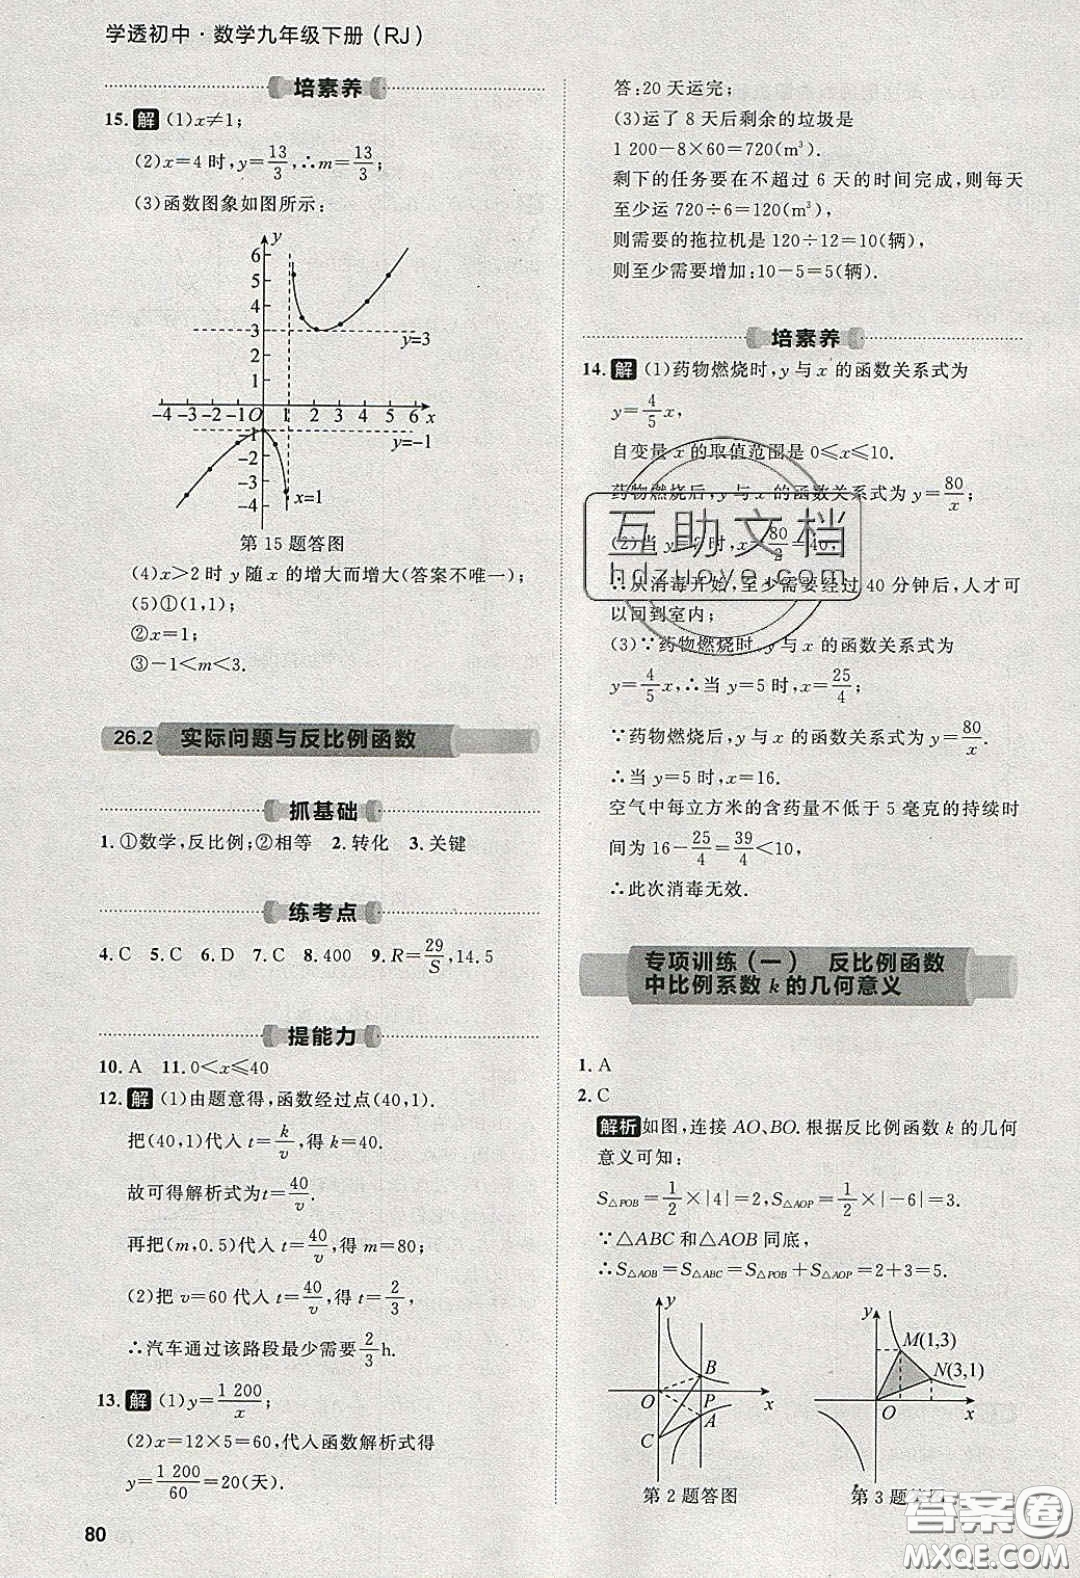 学透初中·数学九年级下册(RJ)
培素养
15. 解 (1)x≠1;
(2)x=4时,y=13/3,∴m=13/3;
(3)函数图象如图所示:
y
6
5
4
3
2
1
y=3
-4 -3 -2 -1 O 1 2 3 4 5 6 x
-1
-2
-3
-4
y=-1
x=1
第15题答图
(4)x>2时y随x的增大而增大(答案不唯一);
(5)①(1,1);
②x=1;
③-1<m<3.
26.2 实际问题与反比例函数
抓基础
1. ①数学,反比例;②相等 2. 转化 3. 关键
练考点
4. C 5. C 6. D 7. C 8. 400 9. R=29/S,14.5
提能力
10. A 11. 0<x≤40
12. 解 (1)由题意得,函数经过点(40,1).
把(40,1)代入t=k/v,得k=40.
故可得解析式为t=40/v.
再把(m,0.5)代入t=40/v,得m=80;
(2)把v=60代入t=40/v,得t=2/3,
∴汽车通过该路段最少需要2/3h.
13. 解 (1)y=1 200/x;
(2)x=12×5=60,代入函数解析式得
y=1 200/60=20(天).
80
答:20天运完;
(3)运了8天后剩余的垃圾是
1 200-8×60=720(m³).
剩下的任务要在不超过6天的时间完成,则每天
至少运720÷6=120(m³),
则需要的拖拉机是120÷12=10(辆),
则至少需要增加:10-5=5(辆).
培素养
14. 解 (1)药物燃烧时,y与x的函数关系式为
y=4/5x,
自变量x的取值范围是0≤x≤10.
药物燃烧后,y与x的函数关系式为y=80/x;
(2)当y=2时,x=80/2=40,
∴从消毒开始,至少需要经过40分钟后,人才可
以回到室内;
(3)∵药物燃烧时,y与x的函数关系式为
y=4/5x,∴当y=5时,x=25/4;
∵药物燃烧后,y与x的函数关系式为y=80/x.
∴当y=5时,x=16.
空气中每立方米的含药量不低于5毫克的持续时
间为16-25/4=39/4<10,
∴此次消毒无效.
专项训练(一) 反比例函数
中比例系数k的几何意义
1. A
2. C
解析 如图,连接AO、BO.根据反比例函数k的几何
意义可知:
S△POB=1/2×|4|=2,S△AOP=1/2×|-6|=3.
∵△ABC和△AOB同底,
∴S△AOB=S△ABC=S△POB+S△AOP=2+3=5.
y
B
O P x
A
C
第2题答图
y
M(1,3)
N(3,1)
O x
第3题答图
互助文档
hdzuoye.com
答案圈
MXQE.COM